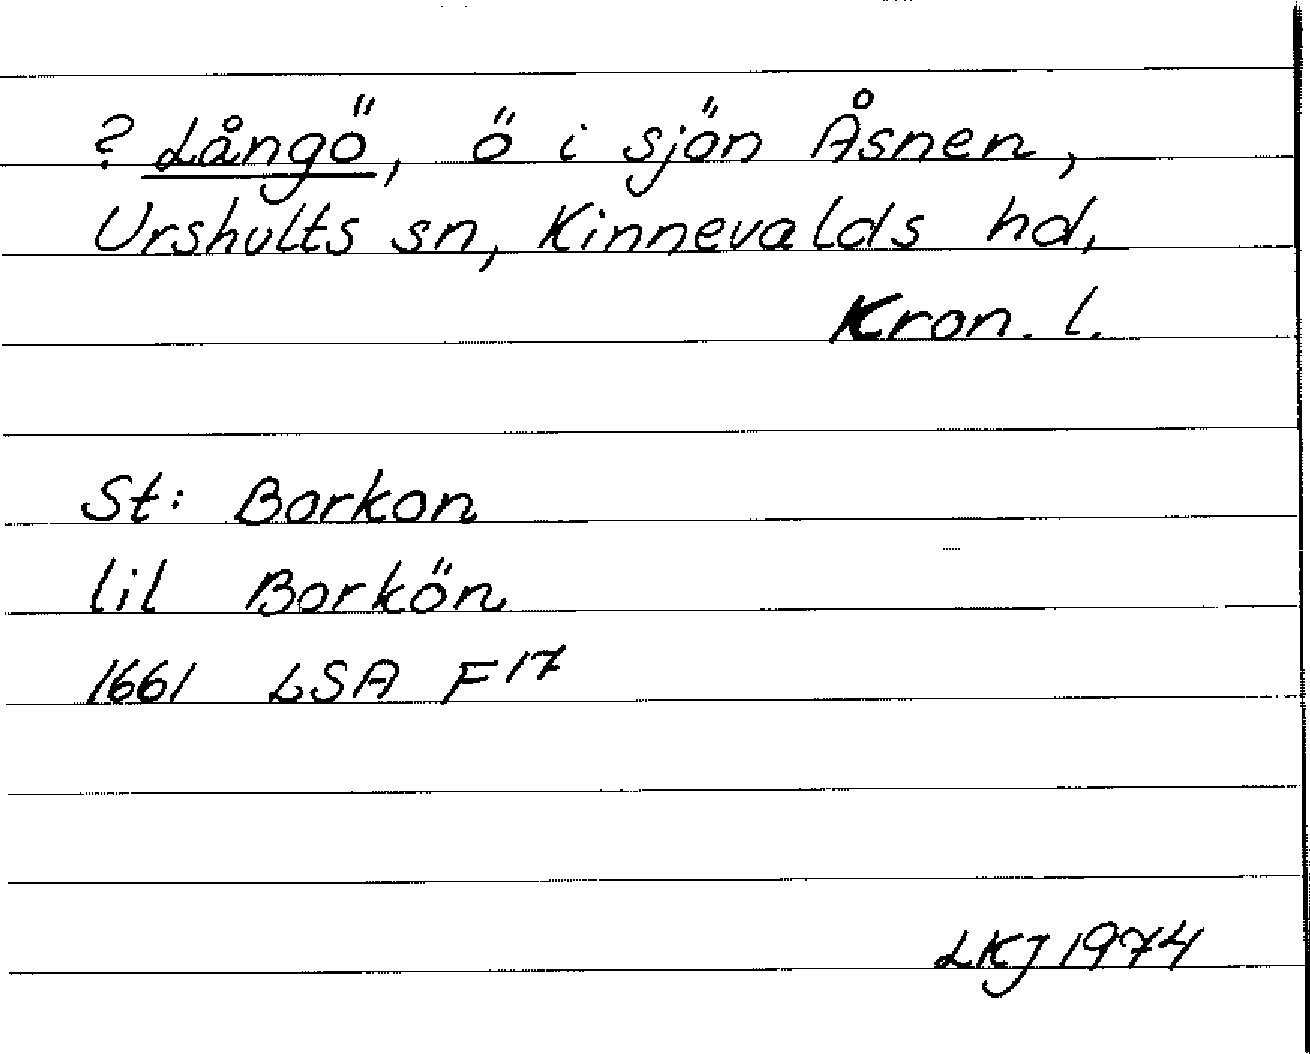 ? Långö, ö i sjön Åsnen,
Urshults sn, Kinnevalds hd,
Kron. l.
St: Borkon
lil Borkön
1661 LSA F17
LKJ 1974